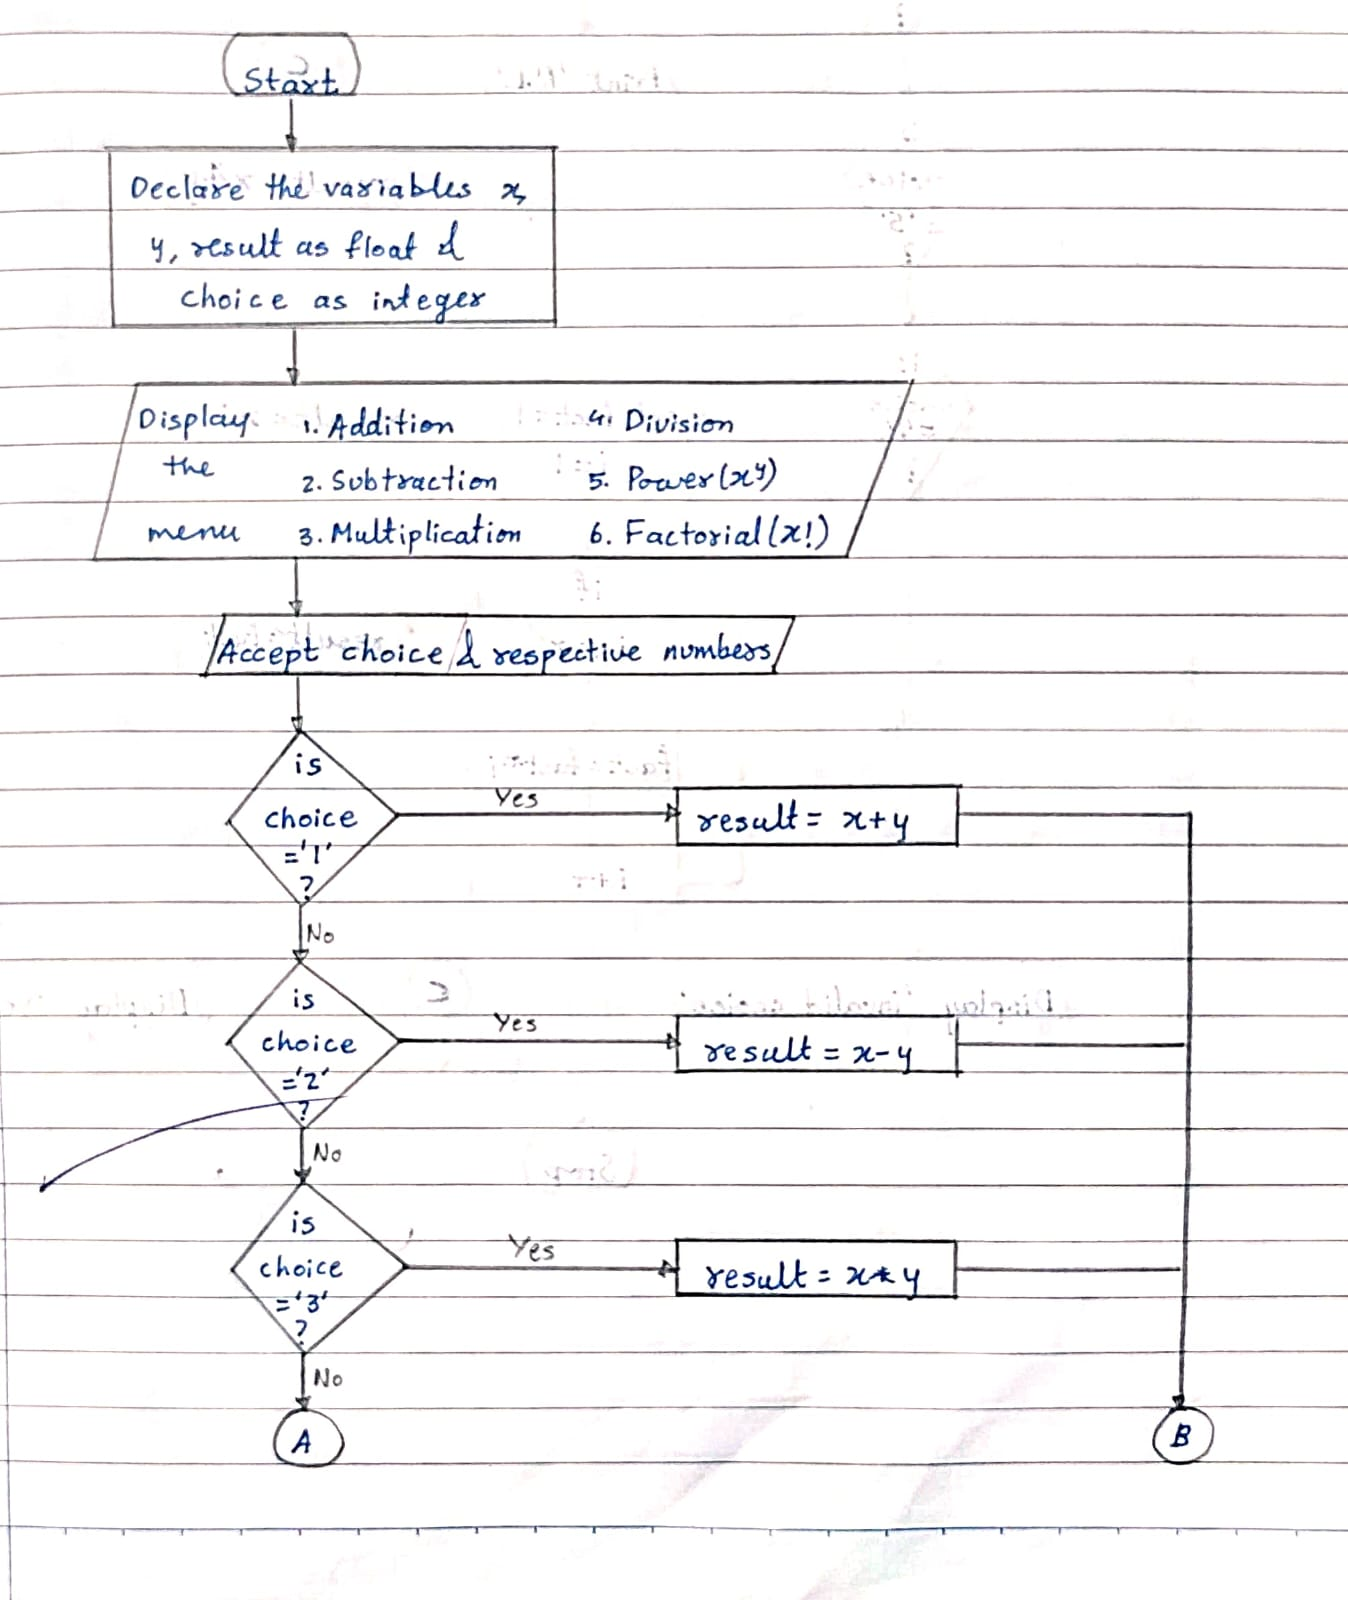 Start
Declare the variables x,
y, result as float &
choice as integer
Display 1. Addition 4. Division
the
2. Subtraction 5. Power (x^y)
menu 3. Multiplication 6. Factorial (x!)
Accept choice & respective numbers
is
choice
='1'
?
Yes
result = x+y
No
is
choice
='2'
?
Yes
result = x-y
No
is
choice
='3'
?
Yes
result = x*y
No
A
B